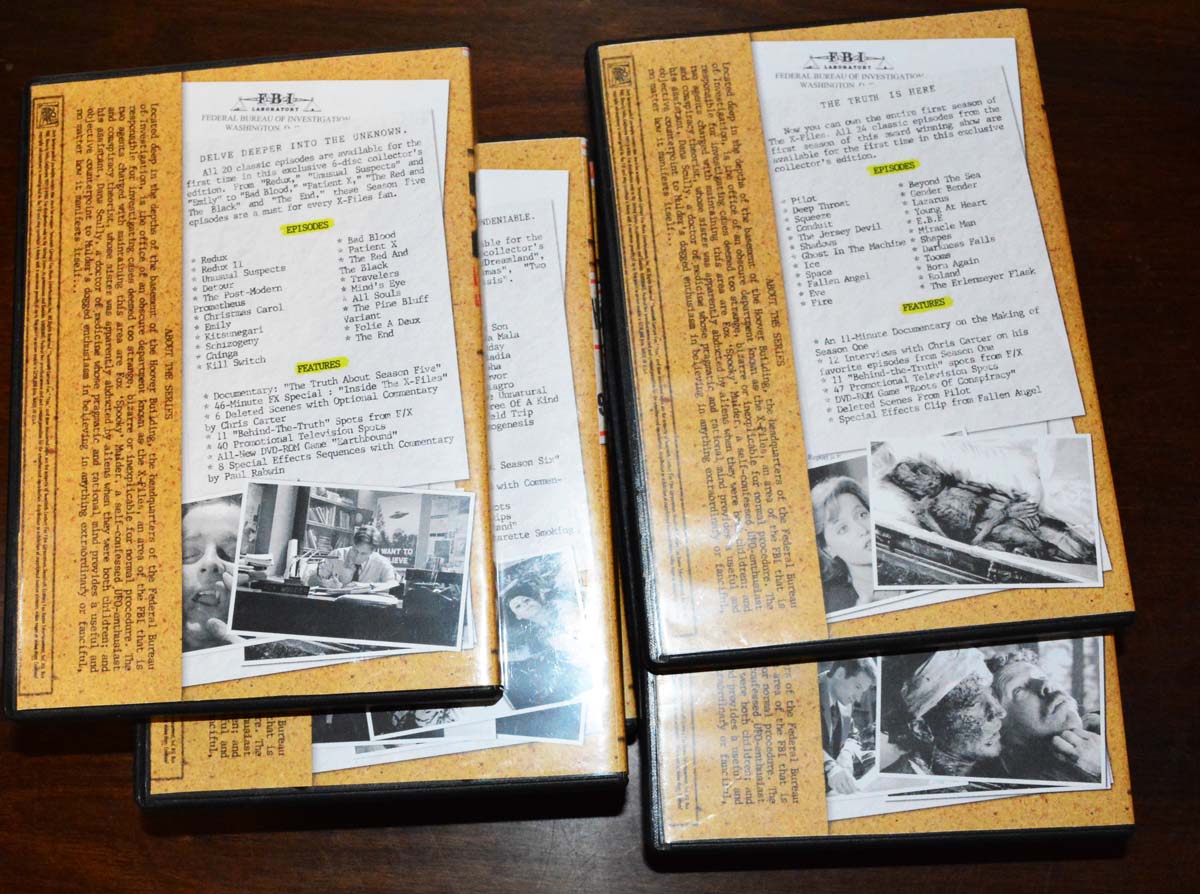 FBI
LABORATORY
FEDERAL BUREAU OF INVESTIGATION
WASHINGTON, D.
DELVE DEEPER INTO THE UNKNOWN.
All 20 classic episodes are available for the
first time in this exclusive 6-disc collector's
edition. From "Redux," "Unusual Suspects" and
"Emily" to "Bad Blood," "Patient X," "The Red and
The Black" and "The End," these Season Five
episodes are a must for every X-Files fan.
EPISODES
* Redux
* Redux 11
* Unusual Suspects
* Detour
* The Post-Modern
Prometheus
* Christmas Carol
* Emily
* Kitsunegari
* Schizogeny
* Chinga
* Kill Switch
* Bad Blood
* Patient X
* The Red And
The Black
* Travelers
* Mind's Eye
* All Souls
* The Pine Bluff
Variant
* Folie A Deux
* The End
FEATURES
* Documentary: "The Truth About Season Five"
* 46-Minute FX Special : "Inside The X-Files"
* 6 Deleted Scenes with Optional Commentary
by Chris Carter
* 11 "Behind-The-Truth" Spots from F/X
* 40 Promotional Television Spots
* All-New DVD-ROM Game "Earthbound"
* 8 Special Effects Sequences with Commentary
by Paul Rabwin
I WANT TO
BELIEVE
ABOUT THE SERIES
Located deep in the depths of the basement of the Hoover Building, the headquarters of the Federal Bureau
of Investigation, is the office of an obscure department known as the X-Files, an area of the FBI that is
responsible for investigating cases deemed too strange, bizarre or inexplicable for normal procedure. The
two agents charged with maintaining this area are Fox 'Spooky' Mulder, a self-confessed UFO-enthusiast
and conspiracy theorist, whose sister was apparently abducted by aliens when they were both children; and
his assistant Dana Scully, a doctor of medicine whose pragmatic and rational mind provides a useful and
objective counterpoint to Mulder's dogged enthusiasm in believing in anything extraordinary or fanciful,
no matter how it manifests itself...
NDENIABLE.
able for the
collector's
"Dreamland",
mas", "Two
sis".
Son
a Mala
day
adia
pha
evor
lagro
Unnatural
ree Of A Kind
eld Trip
ogenesis
Season Six"
with Commen-
ots
ips
and"
arette Smoking
Bureau
that is
The
enthusiast
and
and
fanciful,
FBI
LABORATORY
FEDERAL BUREAU OF INVESTIGATION
WASHINGTON,
THE TRUTH IS HERE
Now you can own the entire first season of
The X-Files. All 24 classic episodes from the
first season of this award winning show are
available for the first time in this exclusive
collector's edition.
EPISODES
* Pilot
* Deep Throat
* Squeeze
* Conduit
* The Jersey Devil
* Shadows
* Ghost In The Machine
* Ice
* Space
* Fallen Angel
* Eve
* Fire
* Beyond The Sea
* Gender Bender
* Lazarus
* Young At Heart
* E.B.E
* Miracle Man
* Shapes
* Darkness Falls
* Tooms
* Born Again
* Roland
* The Erlenmeyer Flask
FEATURES
* An 11-Minute Documentary on the Making of
Season One
* 12 Interviews with Chris Carter on his
favorite episodes from Season One
* 11 "Behind-the-Truth" spots from F/X
* 47 Promotional Television Spots
* DVD-ROM Game "Roots Of Conspiracy"
* Deleted Scenes From Pilot
* Special Effects Clip from Fallen Angel
ABOUT THE SERIES
Located deep in the depths of the basement of the Hoover Building, the headquarters of the Federal Bureau
of Investigation, is the office of an obscure department known as the X-Files, an area of the FBI that is
responsible for investigating cases deemed too strange, bizarre or inexplicable for normal procedure. The
two agents charged with maintaining this area are Fox 'Spooky' Mulder, a self-confessed UFO-enthusiast
and conspiracy theorist, whose sister was apparently abducted by aliens when they were both children; and
his assistant Dana Scully, a doctor of medicine whose pragmatic and rational mind provides a useful and
objective counterpoint to Mulder's dogged enthusiasm in believing in anything extraordinary or fanciful,
no matter how it manifests itself...
rs of the Federal Bureau
area of the FBI that is
or normal procedure. The
confessed UFO-enthusiast
were both children; and
nd provides a useful and
traordinary or fanciful,